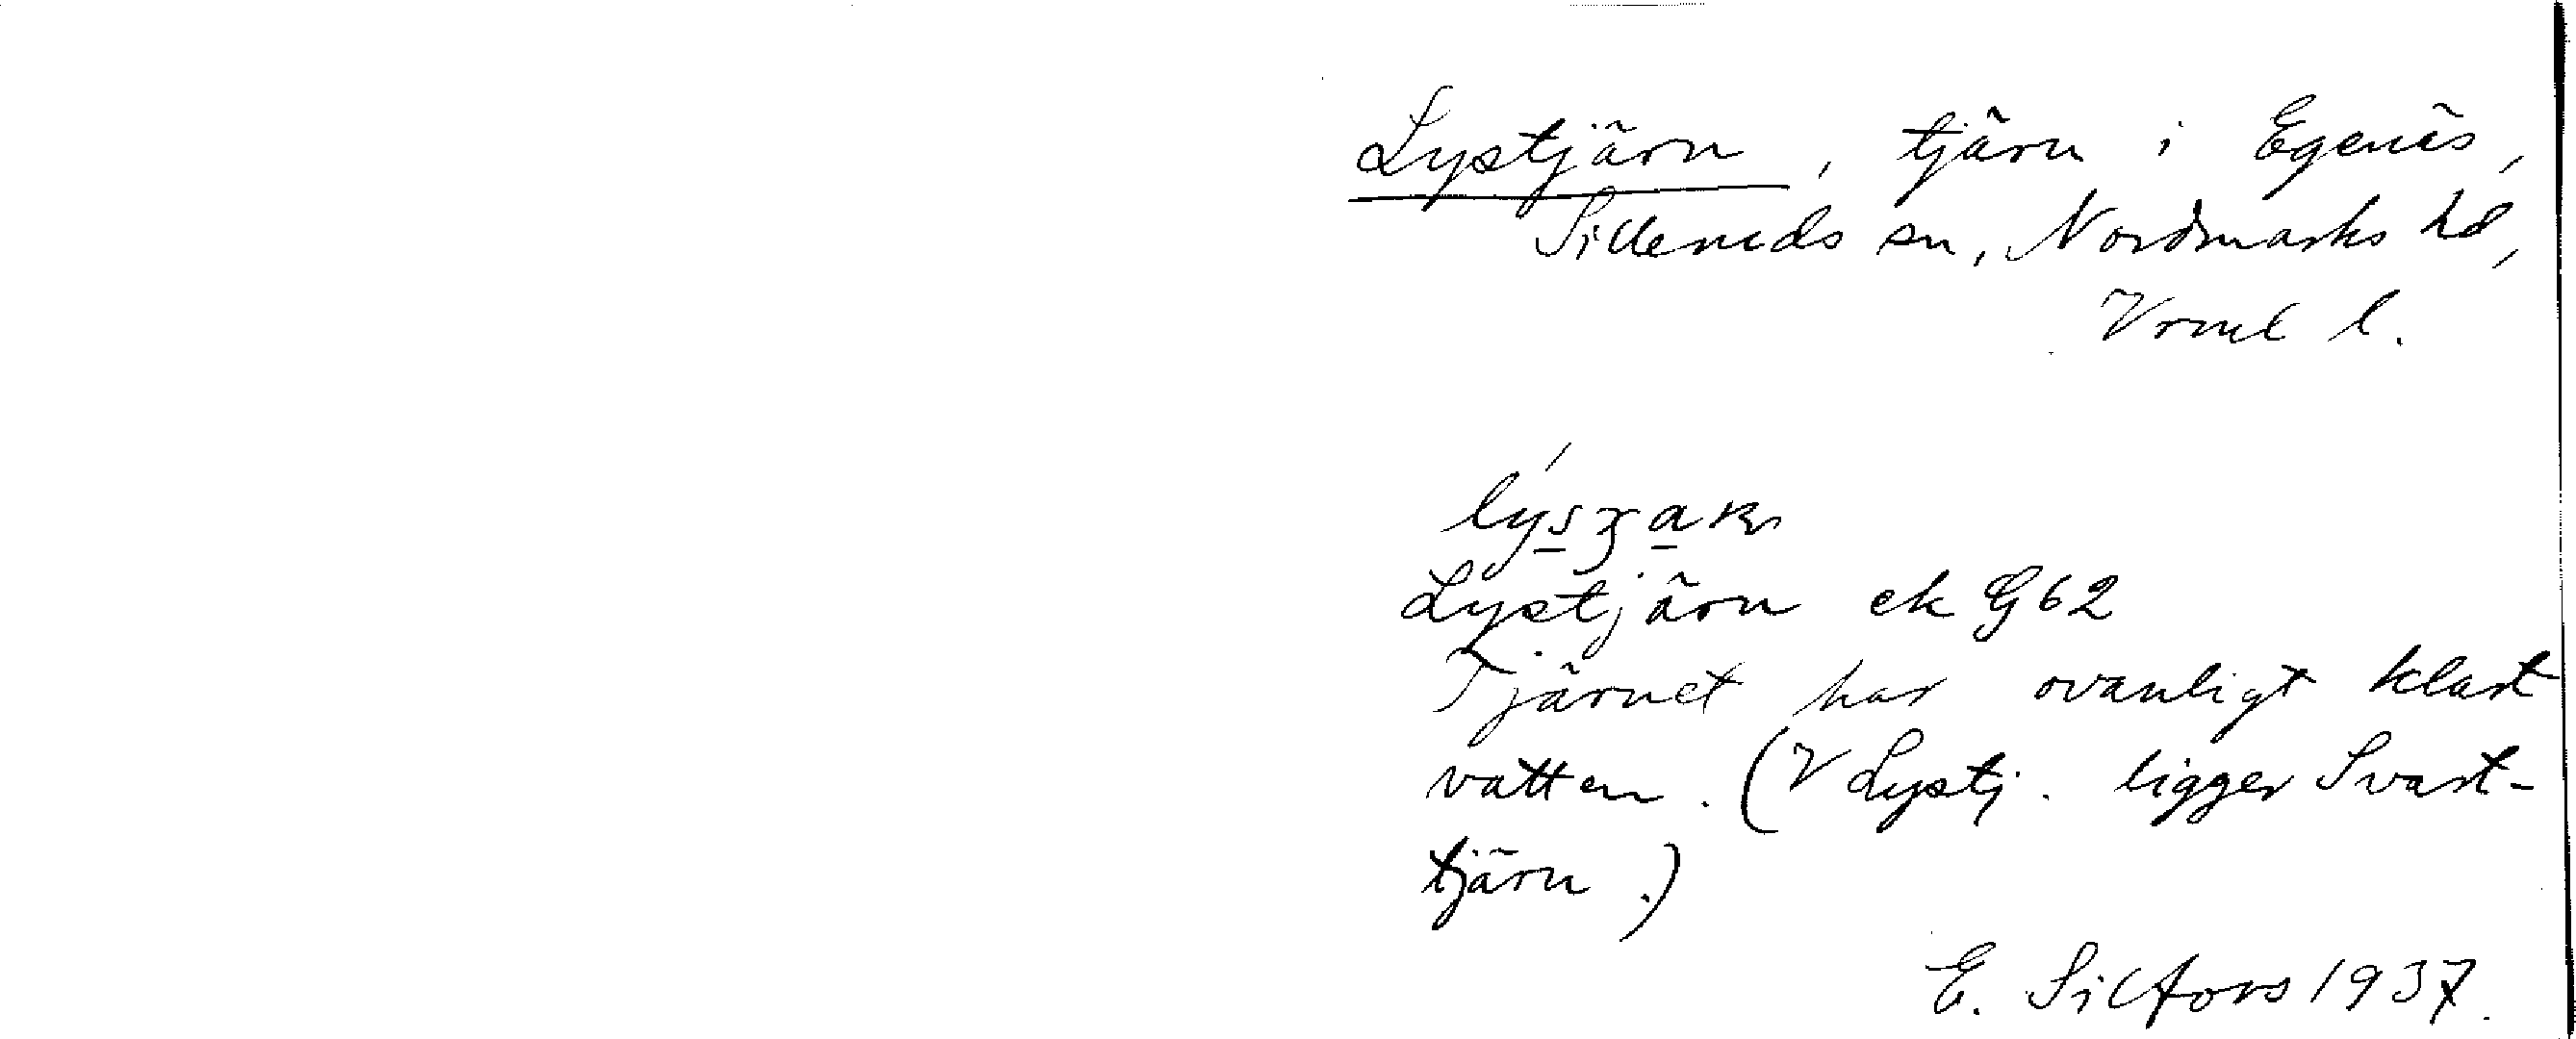 Lystjärn, tjärn i Egenäs,
Silleruds sn, Nordmarks hd,
Vrml l.
Lystjärn ek G62
Tjärnet har ovanligt klart
vatten. (V Lystj. ligger Svart-
tjärn.)
E. Silfors 1937.